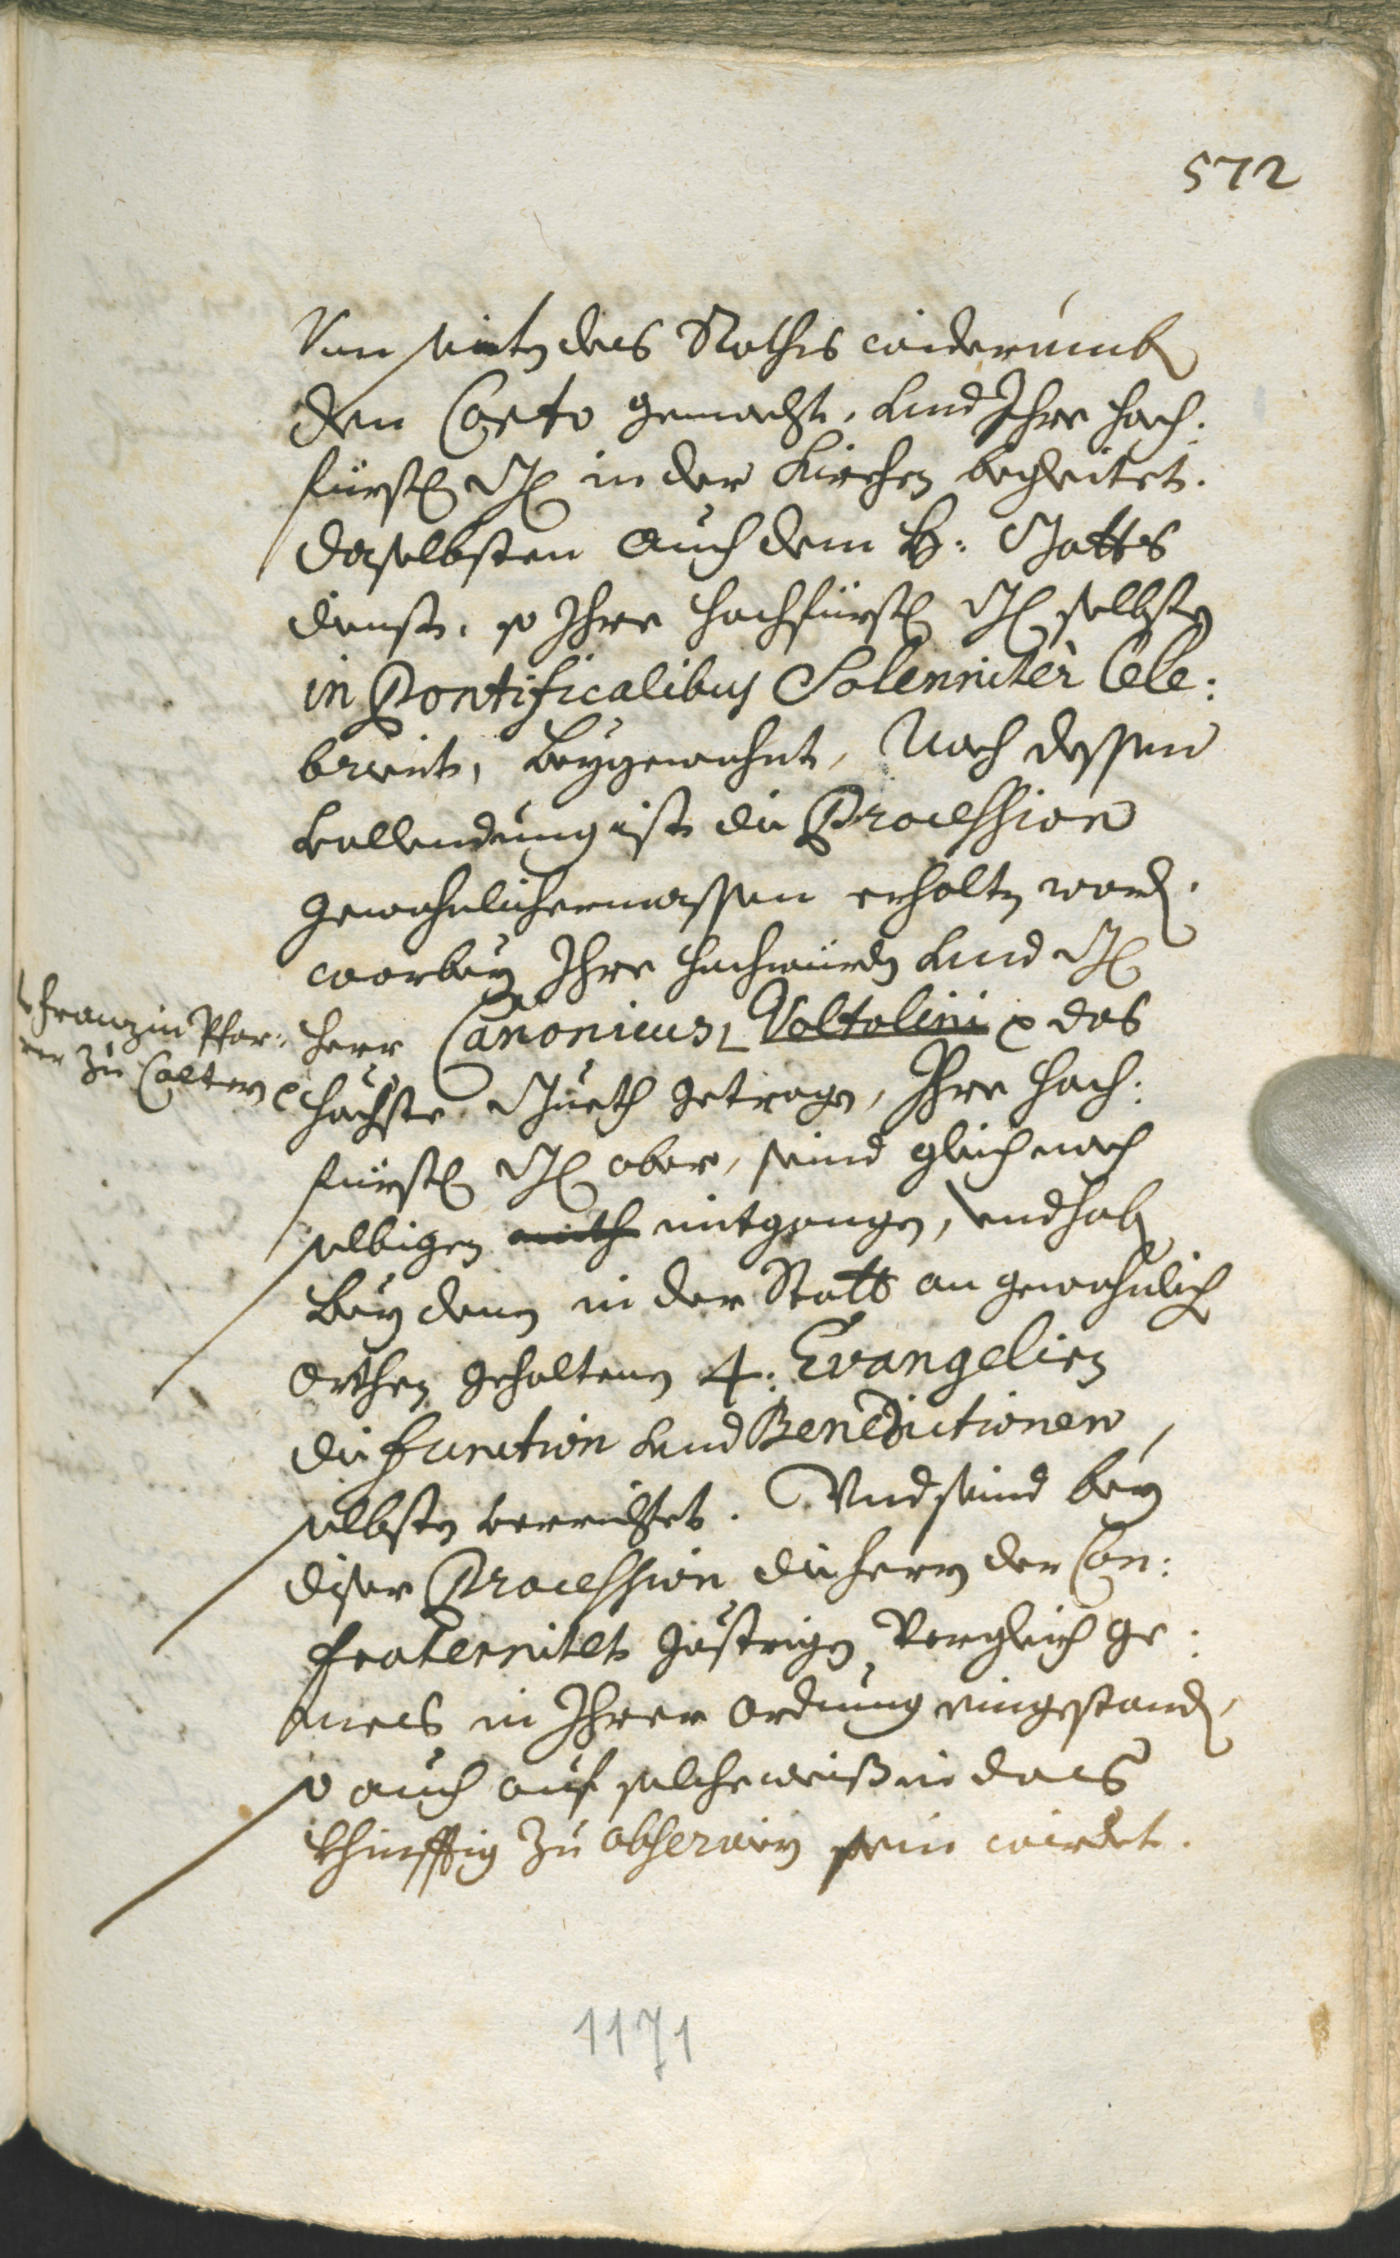 572
Von seiten des Raths widerumb
den Corteo gemacht, und Ihre hoch:
fürstl: Gl: in der Kirchen begleitet.
Daselbsten auch dem H: Gotts
dienst, so Ihre hochfürstl: Gl: selbsten
in Pontificalibus Solenniter Cele:
briert, beygewohnt, Nach dessen
vollendung ist die Procession
gewohnlichermassen erhalten worden.
worbey Ihre hochwürden und Gl:
herr Canonicus Voltolini das
Franzin Pfar:
rer zu Caltern
höchste Gueth getragen, Ihre hoch:
fürstl: Gl: aber, seind gleich nach
selbigen mith mitgangen, und haben
bey denen in der Statt an gewohnlichen
orthen gehaltenen 4: Evangelien
die function und Benedictionen
selbsten verrichtet. Und seind bey
diser Procession die herrn der Con:
fraternitet gästrigen Vergleich ge:
mees in Ihrer ordnung eingestanden,
so auch auf solche weiß in das
khünfftig zu observieren sein wirdet.
1171